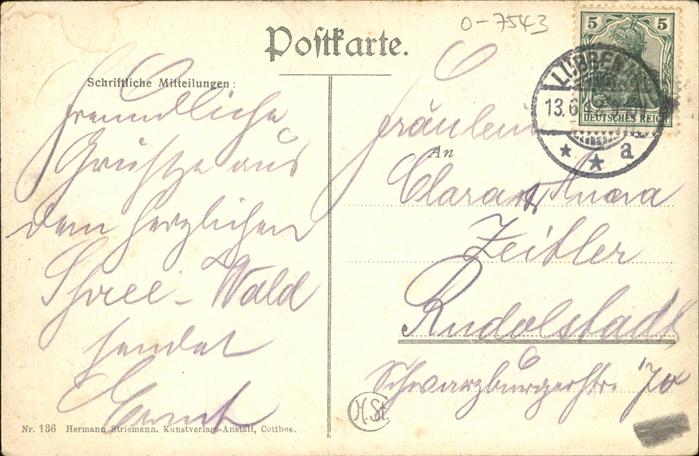 o-7543
Postkarte.
Schriftliche Mitteilungen:
Freundliche
Grüsze aus
dem herzlichen
Spree-Wald
sendet
Ernst
5 5
DEUTSCHES REICH
LÜBBEN
13.6
a
Fräulein
An
Clara Anna
Zeitler
Rudolstadt
Schwarzburgerstr.
H.St.
Nr. 136 Hermann Striemann, Kunstverlags-Anstalt, Cottbus.